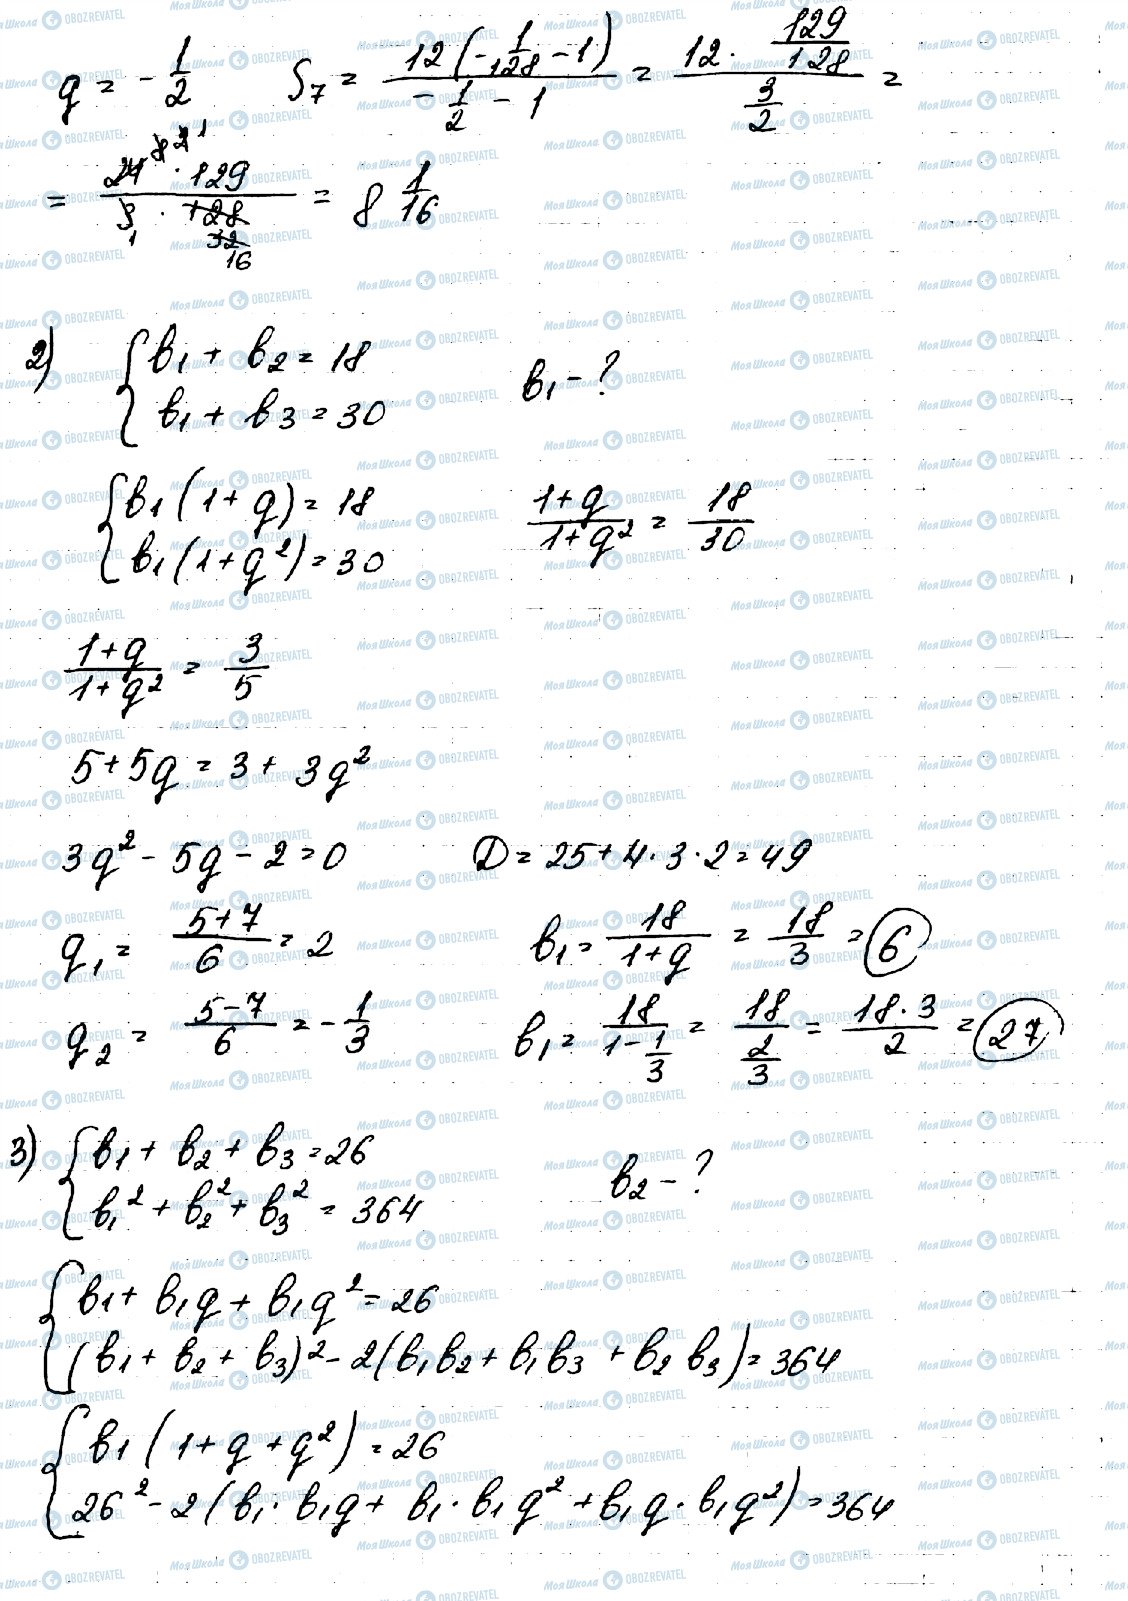 q = -1/2   S₇ = 12(-1/128 - 1)/(-1/2 - 1) = 12 · 129/128 / (3/2) =
= 24 · 129 / (3 · 128) = 8 1/16
8 2 1
1 32
16
2) { b₁ + b₂ = 18   b₁ - ?
b₁ + b₃ = 30
{ b₁(1 + q) = 18   (1+q)/(1+q²) = 18/30
b₁(1 + q²) = 30
(1+q)/(1+q²) = 3/5
5 + 5q = 3 + 3q²
3q² - 5q - 2 = 0   D = 25 + 4 · 3 · 2 = 49
q₁ = (5+7)/6 = 2   b₁ = 18/(1+q) = 18/3 = 6
q₂ = (5-7)/6 = -1/3   b₁ = 18/(1 - 1/3) = 18/(2/3) = 18·3/2 = 27
3) { b₁ + b₂ + b₃ = 26   b₂ - ?
b₁² + b₂² + b₃² = 364
{ b₁ + b₁q + b₁q² = 26
(b₁ + b₂ + b₃)² - 2(b₁b₂ + b₁b₃ + b₂b₃) = 364
{ b₁(1 + q + q²) = 26
26² - 2(b₁ · b₁q + b₁ · b₁q² + b₁q · b₁q²) = 364
МояШкола OBOZREVATEL